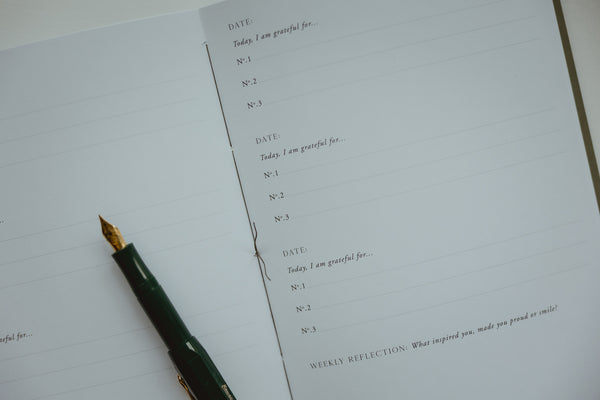 DATE:
Today, I am grateful for...
Nº.1
Nº.2
Nº.3
DATE:
Today, I am grateful for...
Nº.1
Nº.2
Nº.3
DATE:
Today, I am grateful for...
Nº.1
Nº.2
Nº.3
WEEKLY REFLECTION: What inspired you, made you proud or smile?